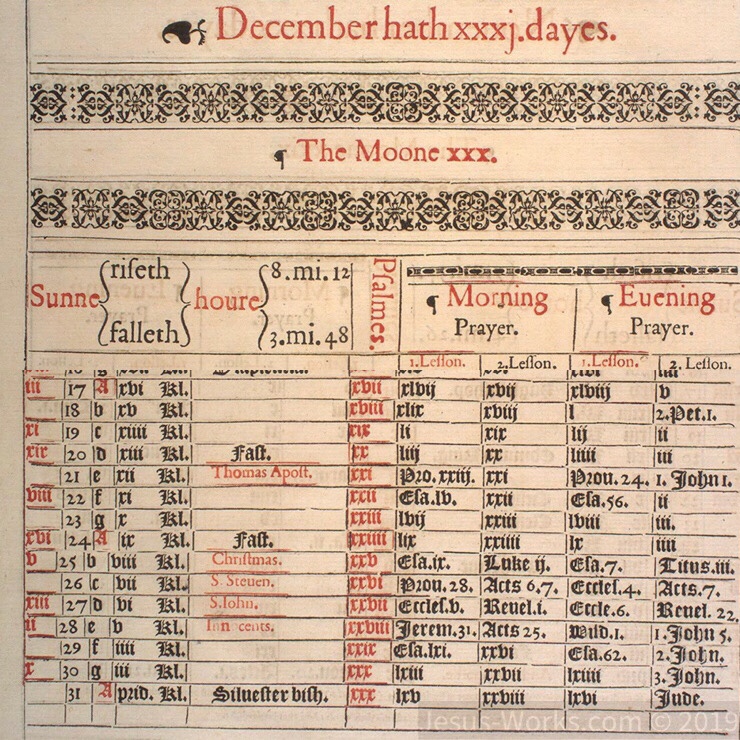 December hath xxxj. dayes.
¶ The Moone xxx.
Sunne { riseth } houre { 8. mi. 12
{ falleth } { 3. mi. 48
Psalmes.
¶ Morning Prayer.
¶ Euening Prayer.
1. Lesson. 2. Lesson. 1. Lesson. 2. Lesson.
iii 17 A xvi Kl. xvii xlvij xvij xlviij v
18 b xv Kl. xviii xlix xviij l 2. Pet. 1.
xi 19 c xiiii Kl. xix li xix lij ii
xix 20 d xiii Kl. Fast. xx liij xx liiii iii
21 e xii Kl. Thomas Apost. xxi Pro. xxiij. xxi Prou. 24. 1. John 1.
viii 22 f xi Kl. xxii Esa. lv. xxii Esa. 56. ii
23 g x Kl. xxiii lvij xxiii lviii iii.
xvi 24 A ix Kl. Fast. xxiiii lix xxiiii lx iiii
v 25 b viii Kl. Christmas. xxv Esa. ix. Luke ij. Esa. 7. Titus. iii.
26 c vii Kl. S. Steuen. xxvi Prou. 28. Acts 6,7. Eccles. 4. Acts. 7.
xiii 27 d vi Kl. S. Iohn. xxvii Eccles. v. Reuel. i. Eccle. 6. Reuel. 22.
ii 28 e v Kl. Innocents. xxviii Jerem. 31. Acts 25. Wisd. 1. 1. John 5.
29 f iiii Kl. xxix Esa. lxi. xxvi Esa. 62. 2. John.
x 30 g iii Kl. xxx lxiii xxvii lxiiii 3. John.
31 A prid. Kl. Siluester bish. xxx lxv xxviii lxvi Jude.
Jesus-Works.com © 2019